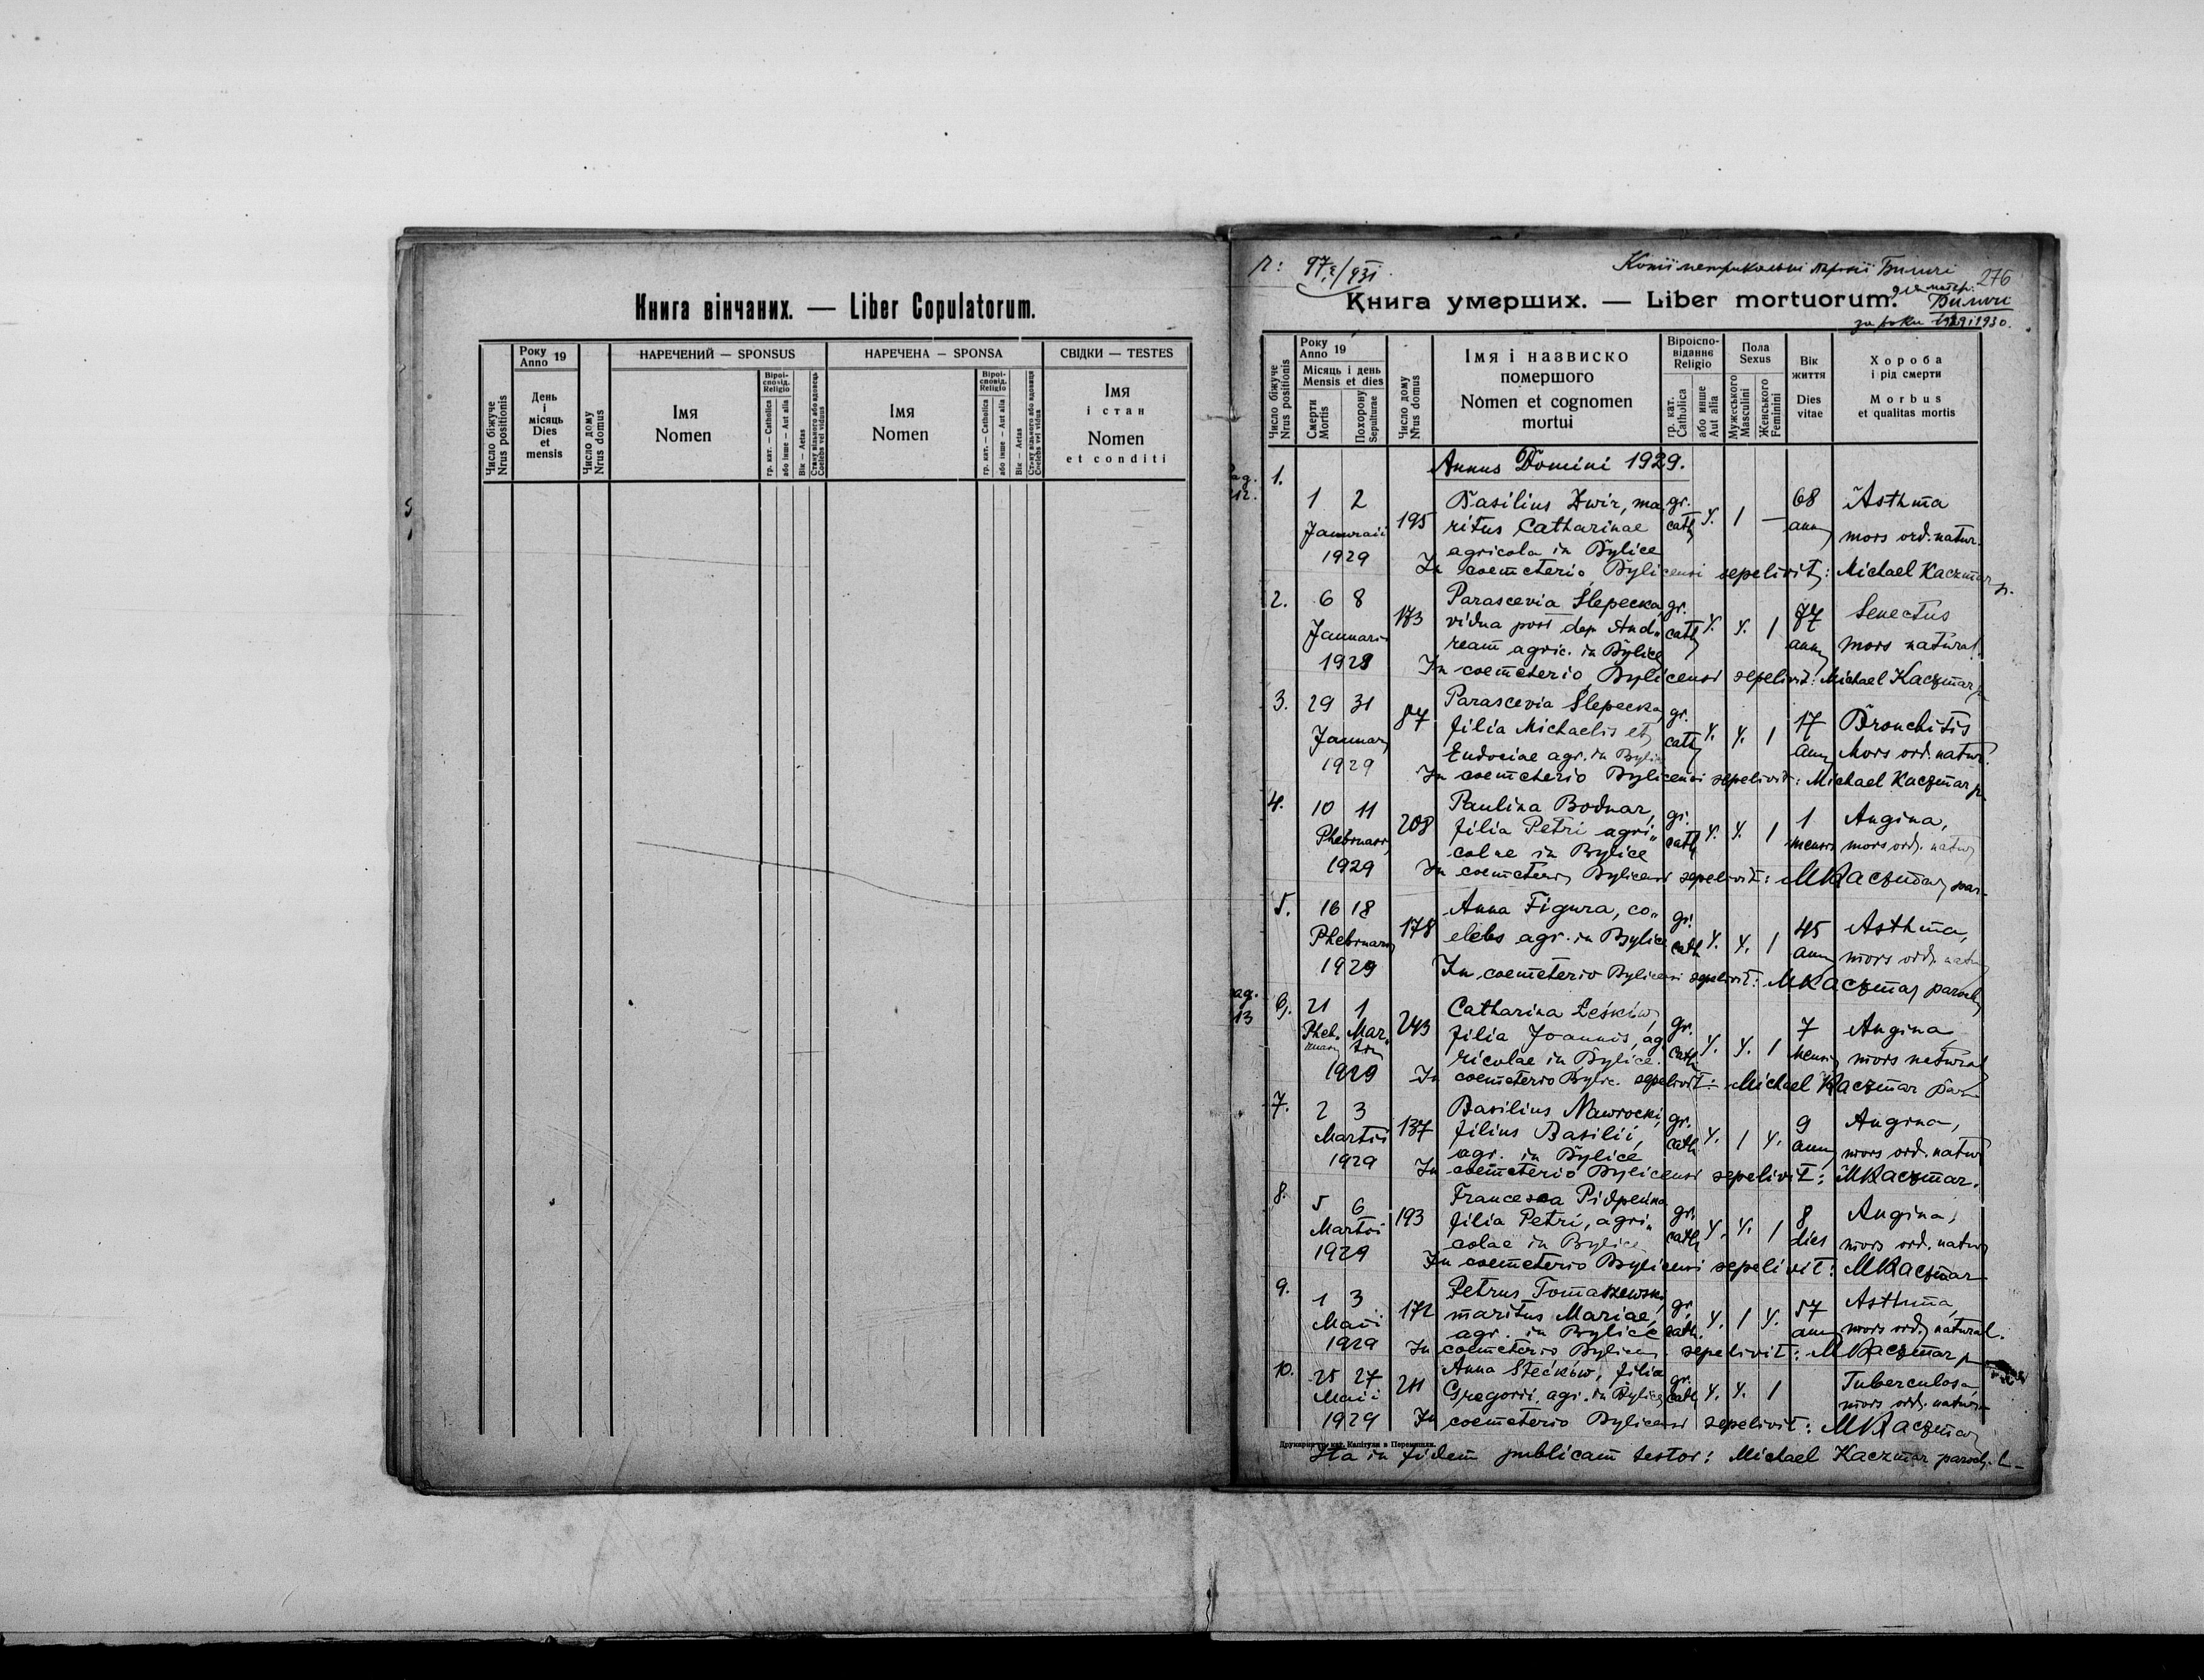 Книга вінчаних. — Liber Copulatorum.
Число біжуче
Nrus positionis
Року
Anno 19
День
і
місяць
Dies
et
mensis
Число дому
Nrus domus
НАРЕЧЕНИЙ — SPONSUS
Імя
Nomen
Віроі-
сповід.
Religio
гр. кат. — Catholica
або інше — Aut alia
Вік — Aetas
Стану вільного або вдовець
Coelebs vel viduus
НАРЕЧЕНА — SPONSA
Імя
Nomen
Віроі-
сповід.
Religio
гр. кат. — Catholica
або інше — Aut alia
Вік — Aetas
Стану вільного або вдовиця
Coelebs vel vidua
СВІДКИ — TESTES
Імя
і стан
Nomen
et conditi
276
за роки 1929 i 1930.
Книга умерших. — Liber mortuorum.
Число біжуче
Nrus positionis
Року
Anno 19
Місяць і день
Mensis et dies
Смерти
Mortis
Похорону
Sepulturae
Число дому
Nrus domus
Імя і назвиско
помершого
Nomen et cognomen
mortui
Віроіспо-
віданнє
Religio
гр. кат.
Catholica
або инше
Aut alia
Пола
Sexus
Мужеського
Masculini
Женського
Feminini
Вік
життя
Dies
vitae
Хороба
і рід смерти
Morbus
et qualitas mortis
Annus Domini 1929.
1.
1 2 Basilius Dwir, ma gr. 68 Asthma
Januarii 195 ritus Catharinae cath 1 — ann mors ord. natur.
1929 agricola in Bylice
In coemeterio Bylicensi sepelivit: Michael Kaczmar
2. 6 8 Parascevia Slepecka gr. 87 Senectus
Januarii 173 vidua post dep. And„ cath 1 ann mors natural.
1929 ream agric. in Bylice
In coemeterio Bylicensi sepelivit: Michael Kaczmar
3. 29 31 87 Parascevia Slepecka gr. 17 Bronchitis
Januar filia Michaelis et cath 1 ann Mors ord. natur.
1929 Eudociae agr. in Bylice
In coemeterio Bylicensi sepelivit: Michael Kaczmar
4. 10 11 Paulina Bodnar, gr. 1 Angina,
Phebruar 208 filia Petri agri„ cath 1 mensis mors ord. natur
1929 colae in Bylice
In coemeterio Bylicensi sepelivit: MKaczmar par.
5. 16 18 Anna Figura, co„ gr. 45 Asthma,
Phebruar 178 elebs agr. in Bylice cath 1 ann mors ord. natur
1929 In coemeterio Bylicensi sepelivit: MKaczmar paroch
6. 21 1 Catharina Leśków gr. 7 Angina
Phebruar Martii 243 filia Joannis, ag cath 1 mens mors natural
1929 ricolae in Bylice.
In coemeterio Bylic. sepelivit: Michael Kaczmar par
7. 2 3 Basilius Nawrocki, gr. 9 Angina,
Martii 137 filius Basilii, cath 1 ann mors ord. natur
1929 agr. in Bylice
In coemeterio Bylicensi sepelivit: MKaczmar.
8. 5 6 Francesca gr. 8 Angina,
Martii 193 filia Petri, agri„ cath 1 dies mors ord. natur
1929 colae in Bylice
In coemeterio Bylicensi sepelivit: MKaczmar
9. 1 3 Petrus Tomaszewski gr. 57 Asthma,
Maii 172 maritus Mariae, cath. 1 ann mors ord. natural.
1929 agr. in Bylice
In coemeterio Bylicen. sepelivit: MKaczmar
10. 25 27 Anna Stećków, filia gr. Tuberculosa
Maii 211 Gregorii, agr. in Bylice cath 1 mors ord. natur
1929 In coemeterio Bylicensi sepelivit: MKaczmar
Друкарня гр. кат. Капітули в Перемишли.
Ita in fidem publicam testor: Michael Kaczmar paroch.